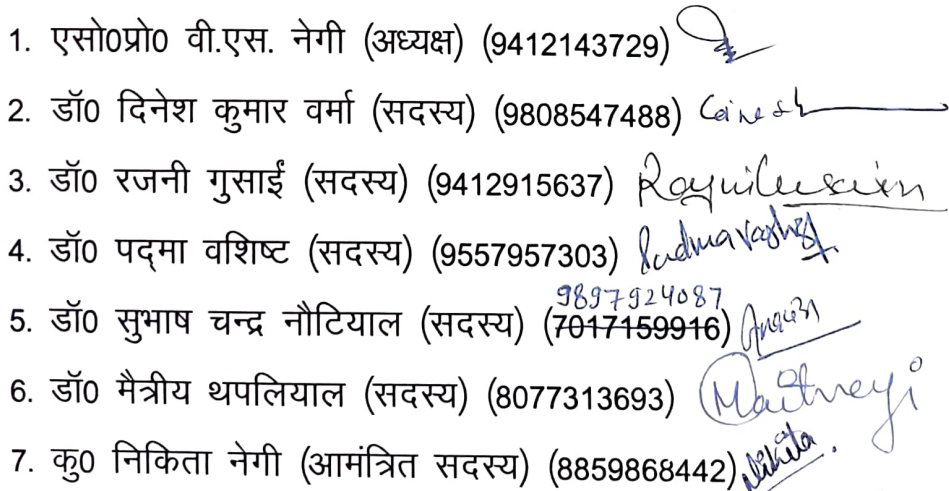 1. एसो0प्रो0 वी.एस. नेगी (अध्यक्ष) (9412143729)
2. डॉ0 दिनेश कुमार वर्मा (सदस्य) (9808547488) Dinesh
3. डॉ0 रजनी गुसाईं (सदस्य) (9412915637)
4. डॉ0 पद्मा वशिष्ट (सदस्य) (9557957303) Padma Vashist
9897924087
5. डॉ0 सुभाष चन्द्र नौटियाल (सदस्य) (7017159916)
6. डॉ0 मैत्रीय थपलियाल (सदस्य) (8077313693) Maitreyi
7. कु0 निकिता नेगी (आमंत्रित सदस्य) (8859868442) Nikita